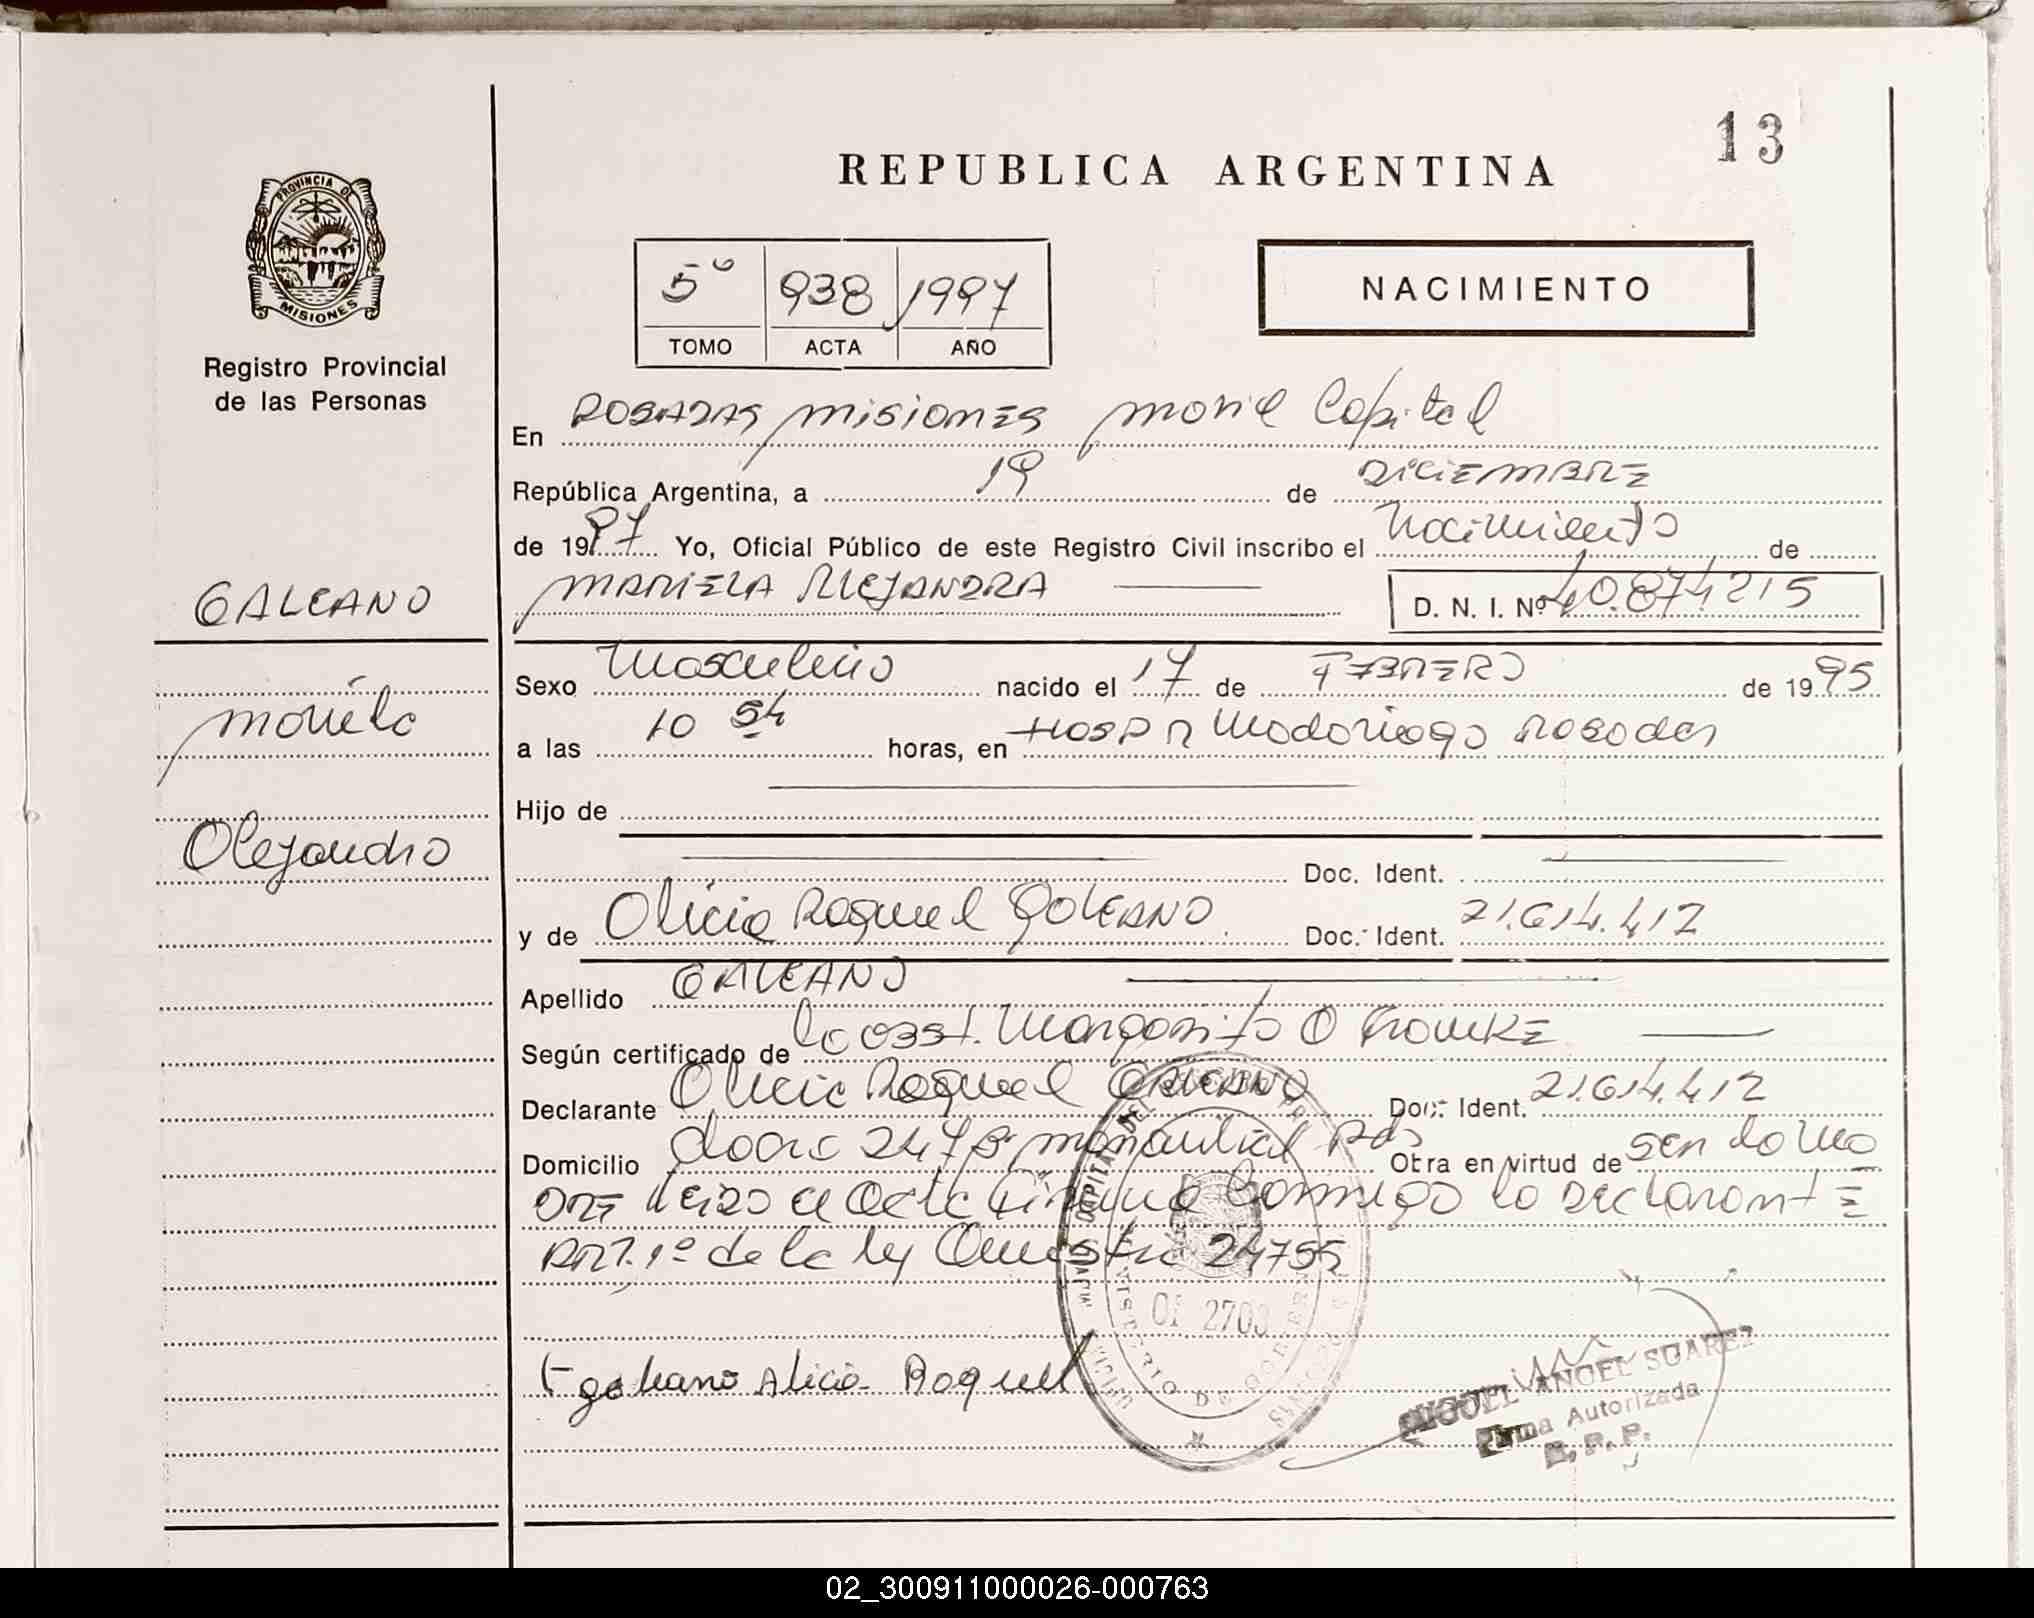 13
REPUBLICA ARGENTINA
PROVINCIA DE
MISIONES
Registro Provincial
de las Personas
5º 938 1997
TOMO ACTA AÑO
NACIMIENTO
En POSADAS MISIONES movil Capital
República Argentina, a 19 de DICIEMBRE
de 1997 Yo, Oficial Público de este Registro Civil inscribo el Nacimiento de
MARIELA ALEJANDRA D. N. I. Nº 40.874215
GALEANO
Mariela
Alejandra
Sexo Masculino nacido el 17 de FEBRERO de 1995
a las 10 54 horas, en HOSP R Madariaga Posadas
Hijo de
Doc. Ident.
y de Alicia Raquel GALEANO Doc. Ident. 21.614.412
Apellido GALEANO
Según certificado de la obst. Margarita
Declarante Alicia Raquel GALEANO Doc. Ident. 21.614.412
Domicilio 2478 Pds Otra en virtud de ser la ma
DRE leido el acta firma conmigo la declarante
ART. 1º de la ley 24755
OF 2703
MINISTERIO DE GOBIERNO
galeano Alicia Raquel
MIGUEL ANGEL SUAREZ
Firma Autorizada
R. P. P.
02_300911000026-000763